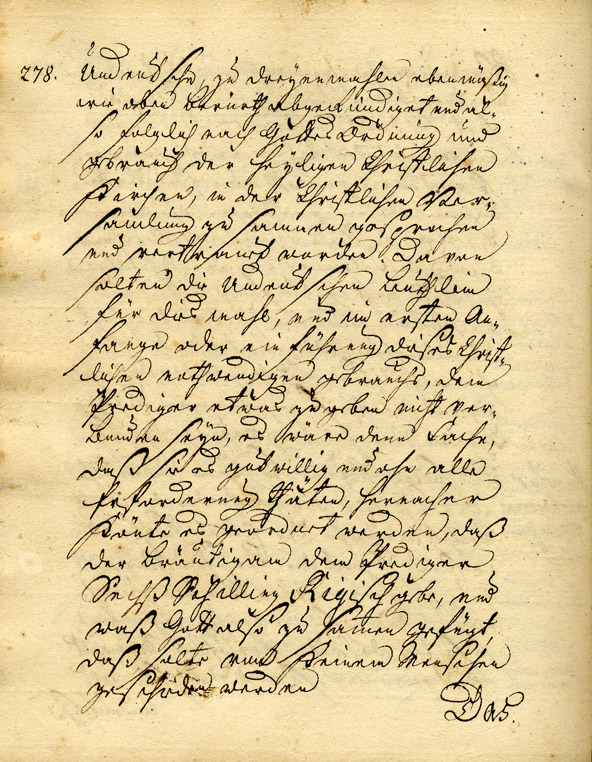 278. Undeutsche, zu dreyenmahlen ebenmäßig
wie oben berürth abgekündiget und al-
so folglich nach Gottes Ordnung und
gebrauch der heyligen Christlichen
Kirchen, in der Christlichen Ver-
samlung zu sammen gesprochen
und verthrauet worden. Da von
solten die Undeutschen Leuthlein
für dießmahl, und im ersten An-
fange oder ein führung dieses Christ-
lichen nothwendigen gebrauchs, dem
Prediger etwas zu geben nicht ver-
bunden seyn, es wäre denn Sache,
daß sie es gutwillig und ohe alle
forderung thäten, hernacher
Könte es geordnet werden, daß
der Bräutigam dem Prediger
Sechß Schilling Rigisch gebe, und
waß Gott also zu samen gefügt,
daß solte von Keinem Menschen
geschieden werden
Das.